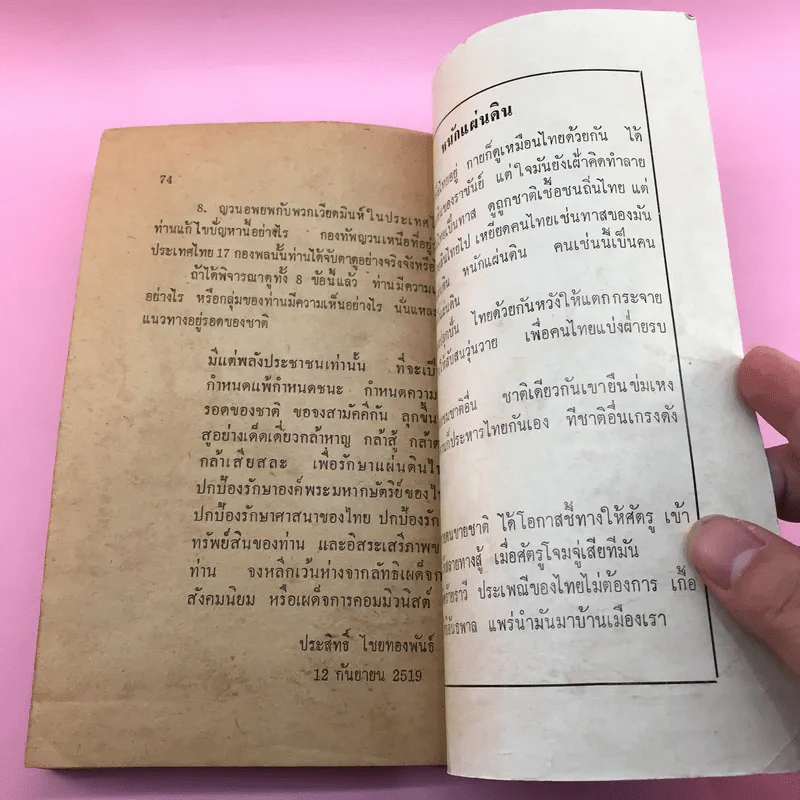 74
8. ญวนอพยพกับพวกเวียดมินห์ในประเทศไ
ท่านแก้ไขปัญหานี้อย่างไร กองทัพญวนเหนือที่อยู่
ประเทศไทย 17 กองพลนั้นท่านได้จับตาดูอย่างจริงจังหรือ
ถ้าได้พิจารณาดูทั้ง 8 ข้อนี้แล้ว ท่านมีความเ
อย่างไร หรือกลุ่มของท่านมีความเห็นอย่างไร นั่นแหละ
แนวทางอยู่รอดของชาติ
มีแต่พลังประชาชนเท่านั้น ที่จะเป็
กำหนดแพ้กำหนดชนะ กำหนดความ
รอดของชาติ ขอจงสามัคคีกัน ลุกขึ้น
สู้อย่างเด็ดเดี่ยวกล้าหาญ กล้าสู้ กล้าต
กล้าเสียสละ เพื่อรักษาแผ่นดินไ
ปกป้องรักษาองค์พระมหากษัตริย์ของไ
ปกป้องรักษาศาสนาของไทย ปกป้องรัก
ทรัพย์สินของท่าน และอิสระเสรีภาพข
ท่าน จงหลีกเว้นห่างจากลัทธิเผด็จก
สังคมนิยม หรือเผด็จการคอมมิวนิสต์
ประสิทธิ์ ไชยทองพันธ์
12 กันยายน 2519
หนักแผ่นดิน
ไทยอยู่ กายก็ดูเหมือนไทยด้วยกัน ได้
ของราชันย์ แต่ใจมันยังเฝ้าคิดทำลาย
เป็นทาส ดูถูกชาติเชื้อชนถิ่นไทย แต่
ไทยไป เหยียดคนไทยเช่นทาสของมัน
หนักแผ่นดิน คนเช่นนี้เป็นคน
ไทยด้วยกันหวังให้แตกกระจาย
สับสนวุ่นวาย เพื่อคนไทยแบ่งฝ่ายรบ
ชาติอื่น ชาติเดียวกันเขายืนข่มเหง
ประหารไทยกันเอง ทีชาติอื่นเกรงดัง
คนขายชาติ ได้โอกาสชี้ทางให้ศัตรู เข้า
ทางสู้ เมื่อศัตรูโจมจู่เสียทีมัน
ราวี ประเพณีของไทยไม่ต้องการ เกื้อ
อันธพาล แพร่นำมันมาบ้านเมืองเรา